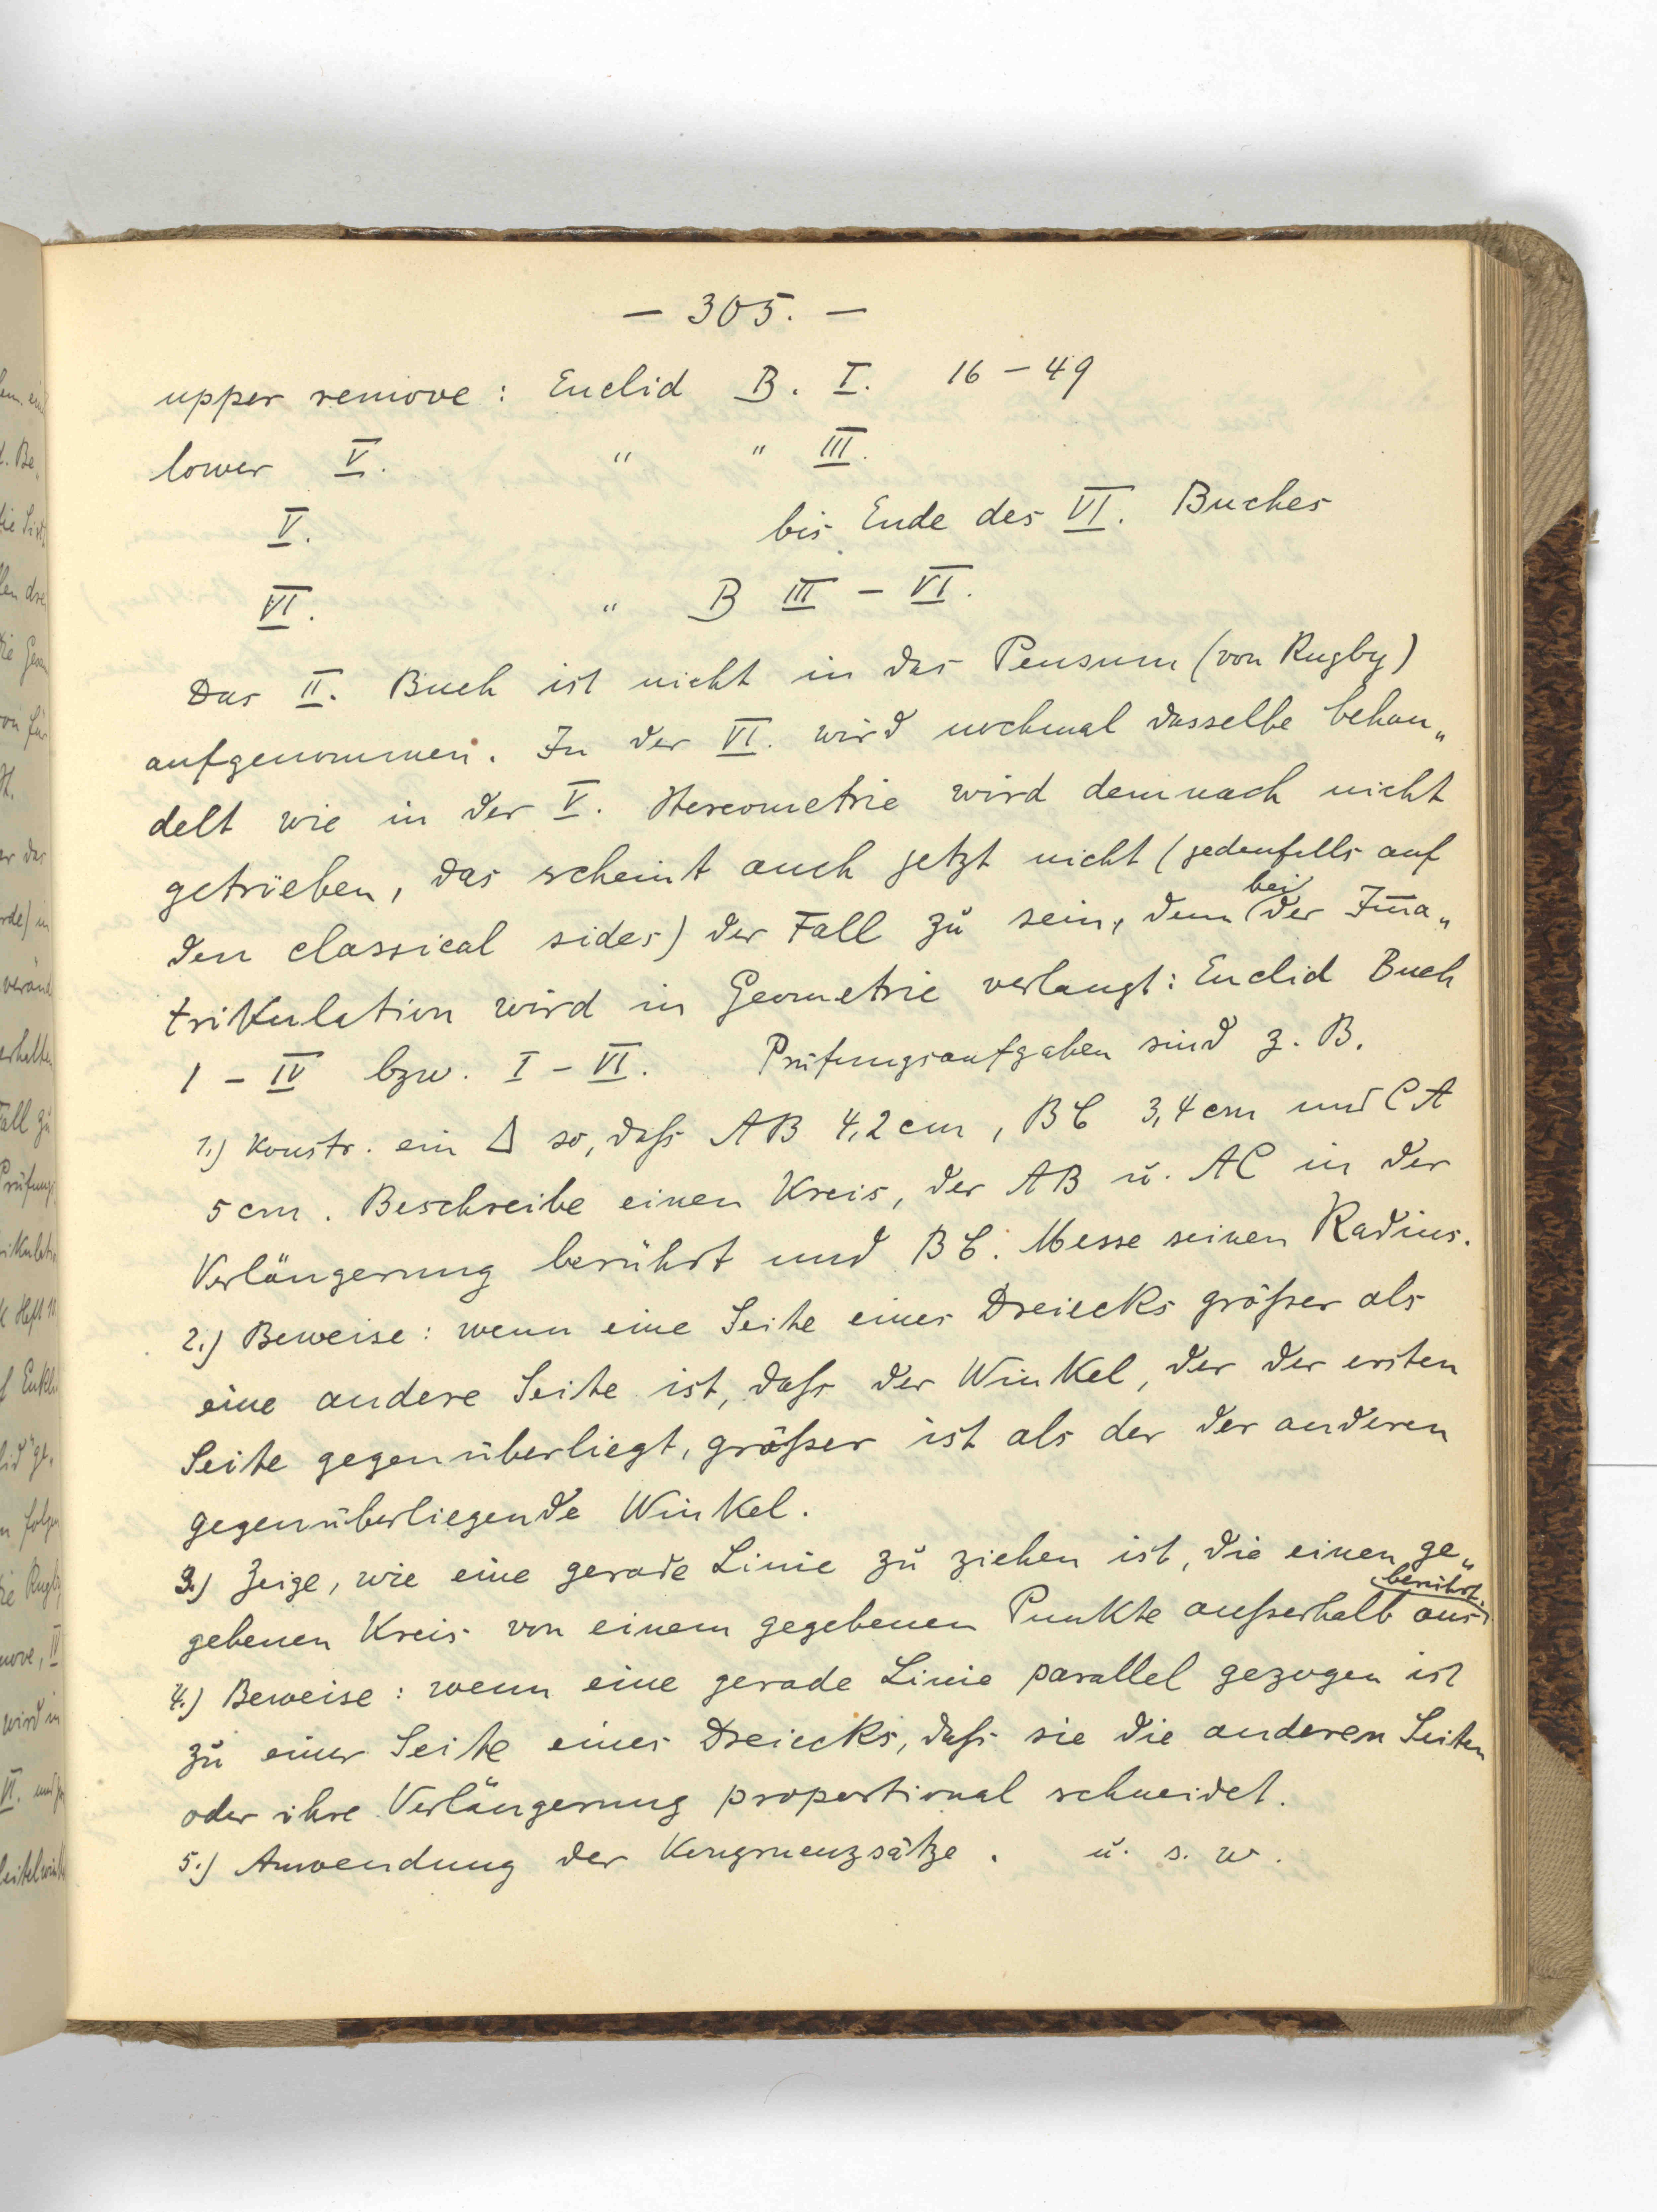 — 305. —
upper remove : Euclid B. I. 16 – 49
lower V. " " III.
V. bis Ende des VI. Buches
VI. " B III – VI.
Das II. Buch ist nicht in das Pensum (von Rugby)
aufgenommen. In der VI. wird nochmal dasselbe behan„
delt wie in der V. Stereometrie wird demnach nicht
getrieben, das scheint auch jetzt nicht (jedenfalls auf
den classical sides) der Fall zu sein, denn bei der Im̅a„
trikulation wird in Geometrie verlangt: Euclid Buch
I – IV bzw. I – VI. Prüfungsaufgaben sind z. B.
1.) Konstr. ein Δ so, daß AB 4,2 cm, BC 3,4 cm und CA
5 cm. Beschreibe einen Kreis, der AB u. AC in der
Verlängerung berührt und BC. Messe seinen Radius.
2.) Beweise: wenn eine Seite eines Dreiecks größer als
eine andere Seite ist, daß der Winkel, der der ersten
Seite gegenüberliegt, größer ist als der der anderen
gegenüberliegende Winkel.
3.) Zeige, wie eine gerade Linie zu ziehen ist, die einen ge„
gebenen Kreis von einem gegebenen Punkte außerhalb aus berührt.
4.) Beweise: wenn eine gerade Linie parallel gezogen ist
zu einer Seite eines Dreiecks, daß sie die anderen Seiten
oder ihre Verlängerung proportional schneidet.
5.) Anwendung der Kongruenzsätze. u. s. w.